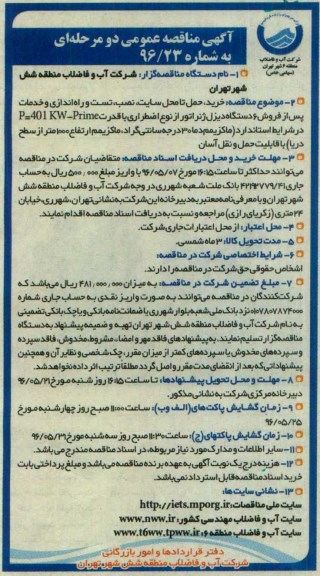 آگهی مناقصه عمومی دو مرحله‌ای
به شماره ۹۶/۲۳
شرکت آب و فاضلاب
منطقه ۶ شهر تهران
(سهامی خاص)
۱- نام دستگاه مناقصه‌گزار: شرکت آب و فاضلاب منطقه شش
شهر تهران
۲- موضوع مناقصه: خرید، حمل تا محل سایت، نصب، تست و راه‌اندازی و خدمات
پس از فروش ۶ دستگاه دیزل ژنراتور از نوع اضطراری با قدرت P=401 KW-Prime
در شرایط استاندارد (ماکزیمم دما ۳۰ درجه سانتی‌گراد، ماکزیمم ارتفاع ۱۰۰۰ متر از سطح
دریا) با قابلیت حمل و نقل آسان
۳- مهلت خرید و محل دریافت اسناد مناقصه: متقاضیان شرکت در مناقصه
می‌توانند حداکثر تا ساعت ۱۶:۱۵ مورخ ۹۶/۰۵/۰۷ با واریز مبلغ ۵۰۰,۰۰۰ ریال به حساب
جاری ۴۲۲۷۷۹/۴۱ بانک ملت شعبه شهرری در وجه شرکت آب و فاضلاب منطقه شش
شهر تهران و با معرفی نامه معتبر به دبیرخانه این شرکت به نشانی تهران، شهرری، خیابان
۲۴ متری (زکریای رازی) مراجعه و نسبت به دریافت اسناد مناقصه اقدام نمایند.
۴- محل اعتبار: از محل اعتبارات جاری شرکت.
۵- مدت تحویل کالا: ۳ ماه شمسی.
۶- شرایط اختصاصی شرکت در مناقصه:
اشخاص حقوقی حق شرکت در مناقصه را دارند.
۷- مبلغ تضمین شرکت در مناقصه: به میزان ۴۸۱,۰۰۰,۰۰۰ ریال می‌باشد که
شرکت‌کنندگان در مناقصه می‌توانند به صورت واریز نقدی به حساب جاری شماره
۰۱۰۷۸۰۷۸۷۴۰۰۰ نزد بانک ملی شعبه بلوار شهرری یا ضمانت‌نامه بانکی و یا چک بانکی تضمینی
به نام شرکت آب و فاضلاب منطقه شش شهر تهران تهیه و ضمیمه پیشنهاد به دستگاه
مناقصه‌گزار تسلیم نمایند. به پیشنهادهای فاقد مهر و امضاء، مشروط، مخدوش، فاقد سپرده
و سپرده‌های مخدوش یا سپرده‌های کمتر از میزان مقرر، چک شخصی و نظایر آن و همچنین
پیشنهاداتی که بعد از انقضای مدت مقرر واصل گردد مطلقا ترتیب اثر داده نخواهد شد.
۸- مهلت و محل تحویل پیشنهادها: تا ساعت ۱۶:۱۵ روز شنبه مورخ ۹۶/۰۵/۲۱
دبیرخانه مرکزی شرکت به نشانی مذکور.
۹- زمان گشایش پاکت‌های (الف و ب): ساعت ۱۱:۰۰ صبح روز چهارشنبه مورخ
۹۶/۰۵/۲۵
۱۰- زمان گشایش پاکتهای (ج): ساعت ۱۱:۳۰ صبح روز سه‌شنبه مورخ ۹۶/۰۵/۳۱
۱۱- سایر اطلاعات و مدارک مورد نیاز مربوطه، در اسناد مناقصه مندرج می‌باشد.
۱۲- هزینه درج یک نوبت آگهی به عهده برنده مناقصه می‌باشد و مبلغ پرداختی بابت
خرید اسناد مناقصه قابل استرداد نمی‌باشد.
۱۳- نشانی سایت‌ها:
سایت ملی مناقصات: http://iets.mporg.ir
سایت آب و فاضلاب مهندسی کشور: www.nww.ir
سایت آب و فاضلاب منطقه ۶: www.t6ww.tpww.ir
دفتر قراردادها و امور بازرگانی
شرکت آب و فاضلاب منطقه شش شهر تهران